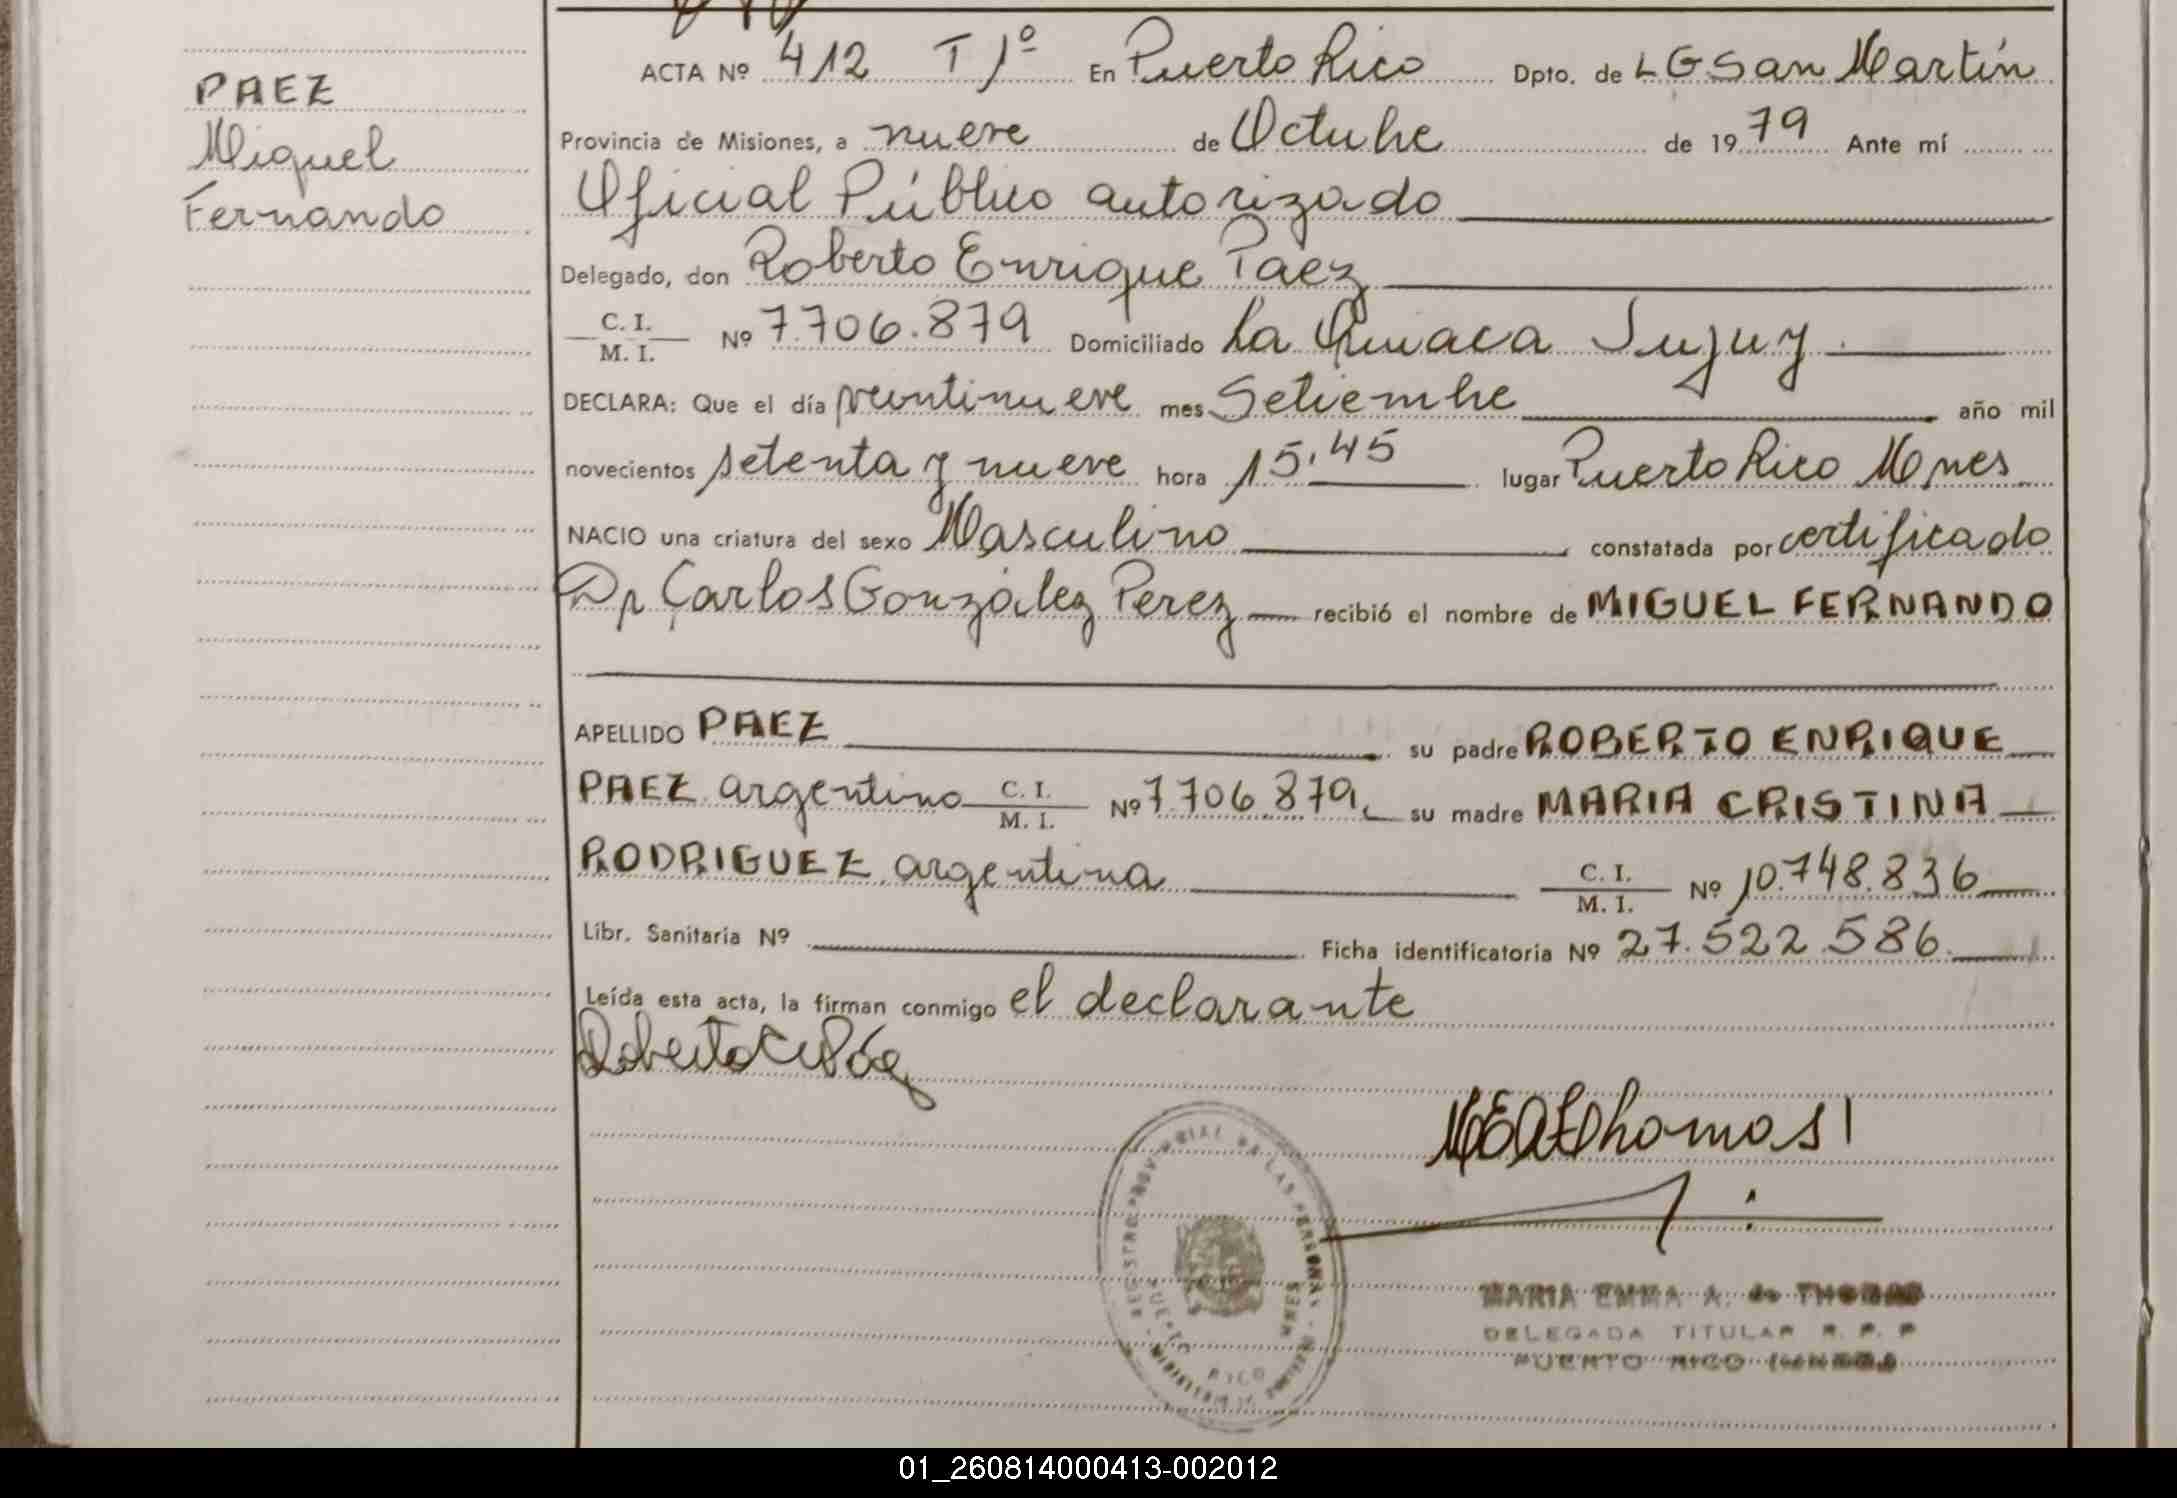 PAEZ
Miguel
Fernando
ACTA Nº 412 T 1º En Puerto Rico Dpto. de L G San Martín
Provincia de Misiones, a nueve de Octubre de 1979 Ante mí
Oficial Público autorizado
Delegado, don Roberto Enrique Paez
C. I. / M. I. Nº 7.706.879 Domiciliado La Quiaca Jujuy
DECLARA: Que el día veintinueve mes Setiembre año mil
novecientos setenta y nueve hora 15,45 lugar Puerto Rico Mnes
NACIO una criatura del sexo Masculino constatada por certificado
Dr Carlos González Perez recibió el nombre de MIGUEL FERNANDO
APELLIDO PAEZ su padre ROBERTO ENRIQUE
PAEZ argentino C. I. / M. I. Nº 7.706.879 su madre MARIA CRISTINA
RODRIGUEZ argentina C. I. / M. I. Nº 10.748.836
Libr. Sanitaria Nº Ficha identificatoria Nº 27.522.586
Leída esta acta, la firman conmigo el declarante
REGISTRO PROVINCIAL DE LAS PERSONAS
PUERTO RICO MNES
MARIA EMMA A. de THOMAS
DELEGADA TITULAR R. P. P
PUERTO RICO
01_260814000413-002012